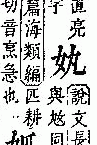 直亮
字
說文長
與同
篇海類編匹耕
切音烹急也